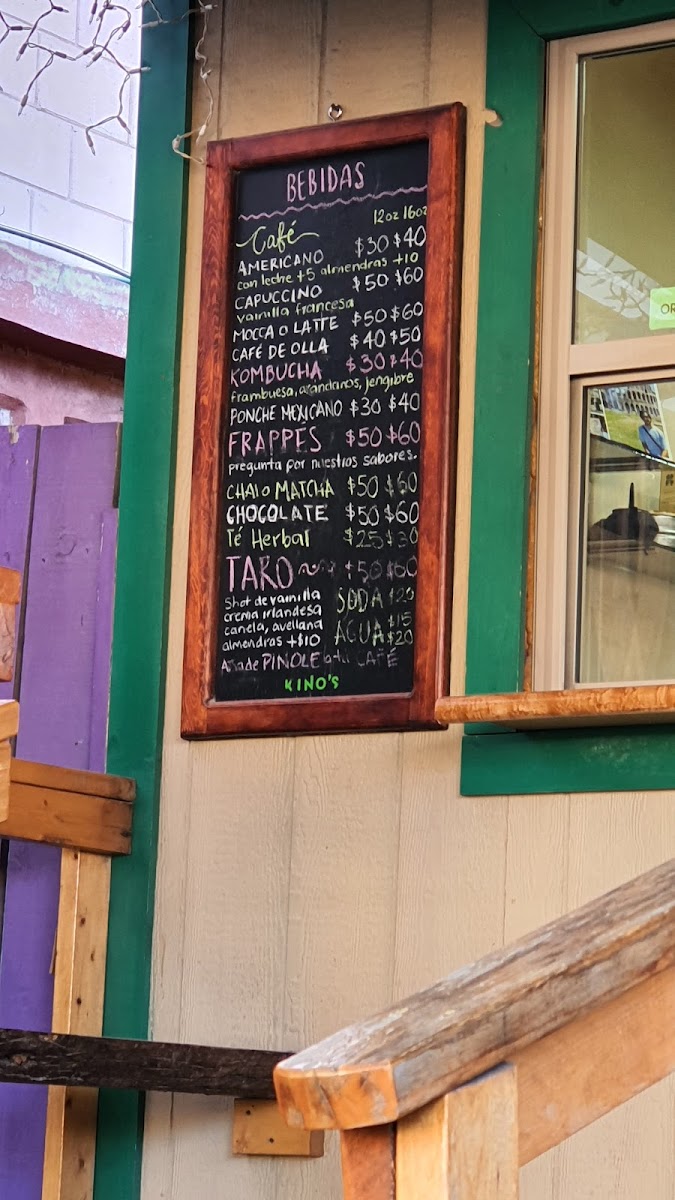 BEBIDAS
Café 12oz 16oz
AMERICANO $30 $40
con leche +5 almendras +10
CAPUCCINO $50 $60
vainilla francesa
MOCCA O LATTE $50 $60
CAFÉ DE OLLA $40 $50
KOMBUCHA $30 $40
frambuesa, arandanos, jengibre
PONCHE MEXICANO $30 $40
FRAPPÉS $50 $60
pregunta por nuestros sabores.
CHAI o MATCHA $50 $60
CHOCOLATE $50 $60
Té Herbal $25 $30
TARO $50 $60
Shot de vainilla
crema irlandesa
canela, avellana
almendras +$10
SODA $20
AGUA $15
$20
Añade PINOLE a tu CAFÉ
KINO'S
OR